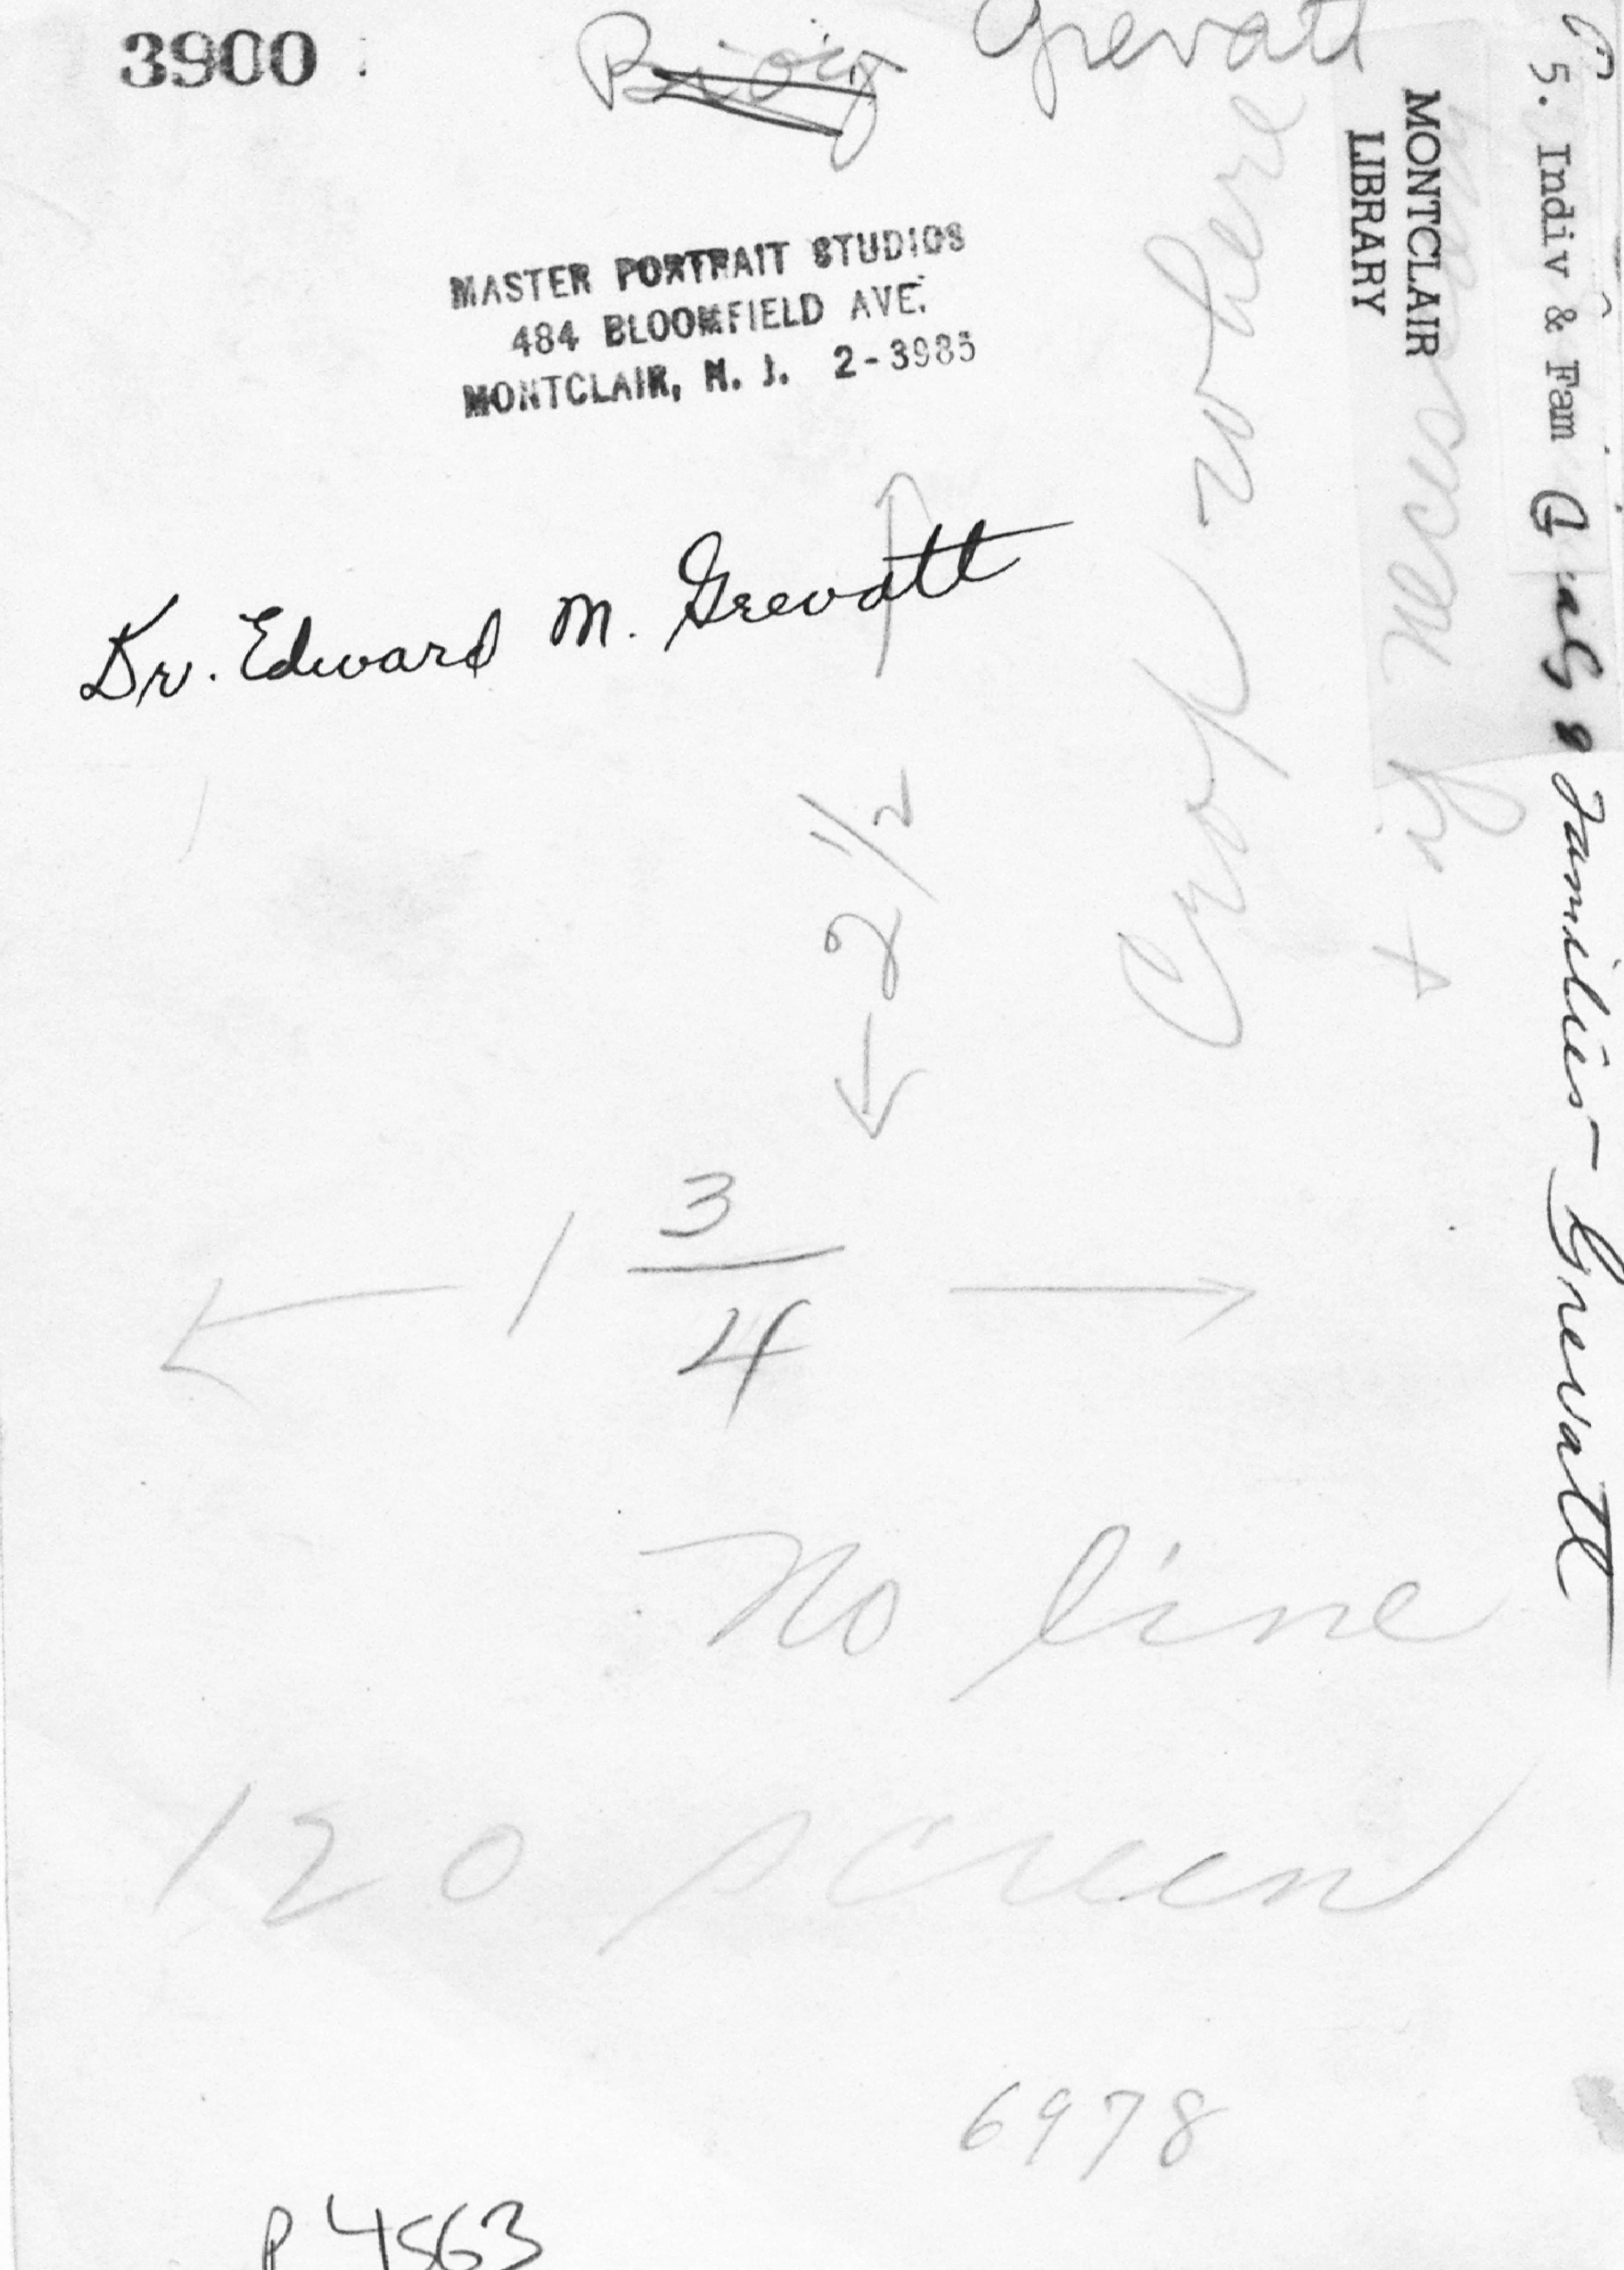 3900
Biog Grevatt
MASTER PORTRAIT STUDIOS
484 BLOOMFIELD AVE.
MONTCLAIR, N. J. 2-3985
Dr. Edward M. Grevatt
2 1/2
1 3/4
No line
120 screen
6978
P4563
Crop where
MONTCLAIR
LIBRARY
necessary
5. Indiv & Fam
Families - Grevatt